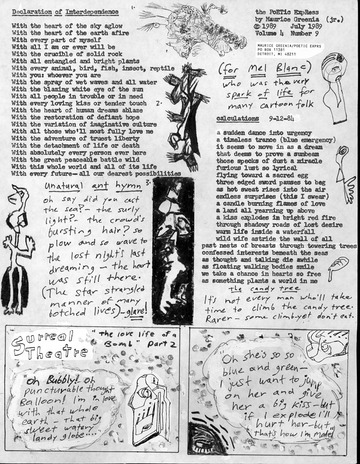 Declaration of Interdependence
With the heart of the sky aglow
With the heart of the earth afire
With every part of myself
With all I am or ever will be
With the crucible of solid rock
With all entangled and bright plants
With every animal, bird, fish, insect, reptile
With you wherever you are
With the spray of wet waves and all water
With the blazing white eye of the sun
With all people in trouble or in need
With every loving kiss or tender touch
With the heart of human dreams ablaze
With the restoration of defiant hope
With the variation of imaginative culture
With all those who'll most fully love me
With the adventure of truest liberty
With the detachment of life or death
With absolutely every person ever here
With the great peaceable battle wild
With this whole world and all of life
With every future—all our dearest possibilities
the POETIC EXPRESS
by Maurice Greenia (Jr.)
©1989 July 1989
Volume 4 Number 9
MAURICE GREENIA/POETIC EXPRES
DETROIT, MI
(for Mel Blanc)
who was the very
spark of life for
many cartoon folk
calculations 9-12-84
a sudden dance into urgency
a timeless trance (blue emergency)
it seems to move in as a dream
that deems to prove a sunbeam
those specks of dust a miracle
furious lust so lyrical
flying toward a sacred egg
three edged sword pauses to beg
as hot sweat rises into the air
endless surprises (this I swear)
a candle burning flames of love
a land all yearning up above
a kiss explodes in bright red fire
through shadowy roads of lost desire
warm life inside a waterfall
wild wife astride the wall of all
past nests of breasts through towering trees
confessed interests beneath the seas
as thought and talking die awhile
as floating walking bodies smile
we take a chance in hearts so free
as something plants a world in me
the candy tree
It's not every man who'll take
time to climb the candy tree.
Raver—some climb yet don't eat.
Unatural ant hymn
oh say did you eat
the sea?—the surly
light?—the crowd's
bursting hair? so
low and so wave to
the lost night's last
dreaming—the hart
was still there.
(The star strangled
manner of many
botched lives)—glare!
Surreal
Theatre
"The love life of a
Bomb" Part 2
"Oh Bubbly! oh
puncturable thought
Balloon! I'm in love
with that whole
earth—that big
sweet watery
landy globe...
"Oh she's so so
blue and green—
I just want to jump
on her and give
her a big kiss—but
if I explode I'll
hurt her—but
that's how I'm made!